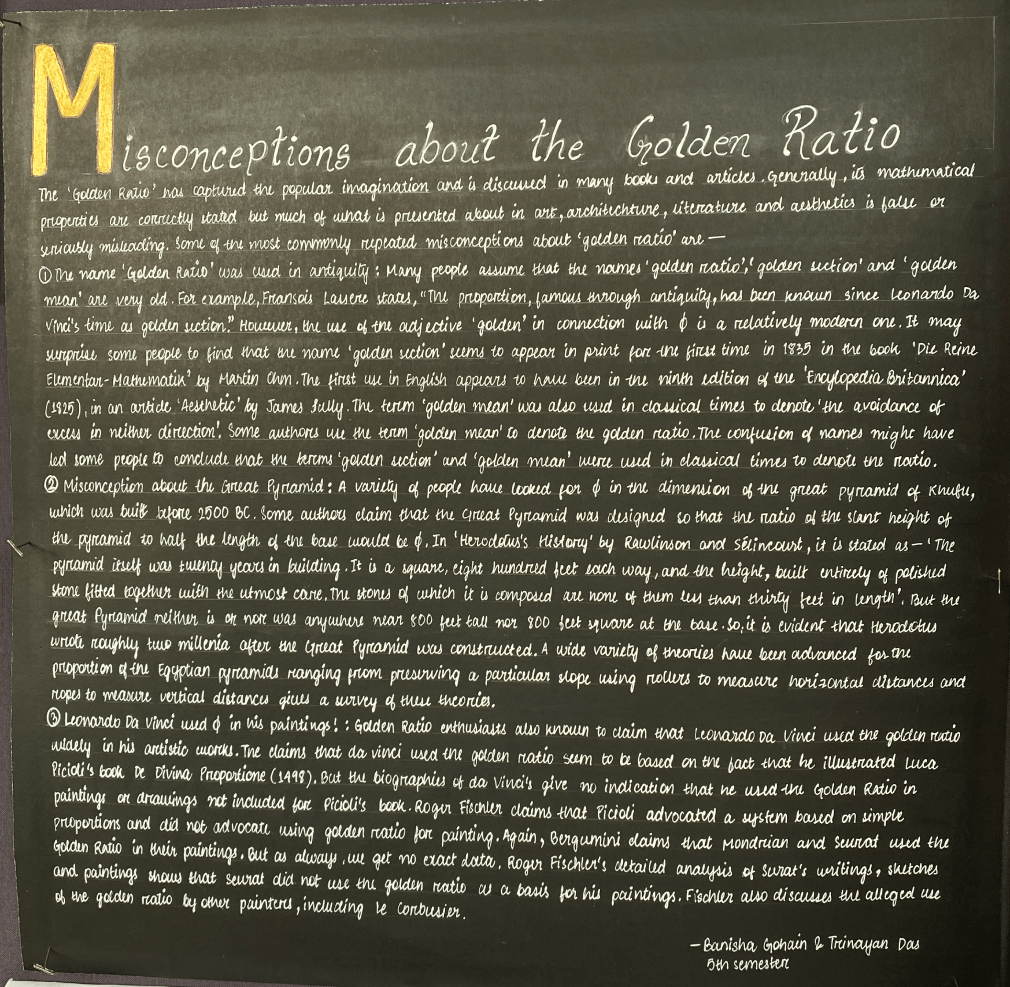 Misconceptions about the Golden Ratio
The 'Golden Ratio' has captured the popular imagination and is discussed in many books and articles. Generally, its mathematical
properties are correctly stated but much of what is presented about in art, architechture, literature and aesthetics is false or
seriously misleading. Some of the most commonly repeated misconceptions about 'golden ratio' are —
① The name 'Golden Ratio' was used in antiquity: Many people assume that the names 'golden ratio', 'golden section' and 'golden
mean' are very old. For example, Fransois Lassere states, "The proportion, famous through antiquity, has been known since Leonardo Da
Vinci's time as golden section." However, the use of the adjective 'golden' in connection with ϕ is a relatively modern one. It may
surprise some people to find that the name 'golden section' seems to appear in print for the first time in 1835 in the book 'Die Reine
Elementar-Mathematik' by Martin Ohm. The first use in English appears to have been in the ninth edition of the 'Encylopedia Britannica'
(1825), in an article 'Aesthetic' by James Sully. The term 'golden mean' was also used in classical times to denote 'the avoidance of
excess in neither direction'. Some authors use the term 'golden mean' to denote the golden ratio. The confusion of names might have
led some people to conclude that the terms 'golden section' and 'golden mean' were used in classical times to denote the ratio.
② Misconception about the Great Pyramid: A variety of people have looked for ϕ in the dimension of the great pyramid of Khufu,
which was built before 2500 BC. Some authors claim that the Great Pyramid was designed so that the ratio of the slant height of
the pyramid to half the length of the base would be ϕ. In 'Heroddus's History' by Rawlinson and Sélincourt, it is stated as — 'The
pyramid itself was twenty years in building. It is a square, eight hundred feet each way, and the height, built entirely of polished
stone fitted together with the utmost care. The stones of which it is composed are none of them less than thirty feet in length'. But the
great Pyramid neither is or nor was anywhere near 800 feet tall nor 800 feet square at the base. So, it is evident that Herodotus
wrote roughly two millenia after the Great Pyramid was constructed. A wide variety of theories have been advanced for the
proportion of the Egyptian pyramids ranging from preserving a particular slope using rollers to measure horizontal distances and
ropes to measure vertical distances gives a survey of these theories.
③ Leonardo Da Vinci used ϕ in his paintings! : Golden Ratio enthusiasts also known to claim that Leonardo Da Vinci used the golden ratio
widely in his artistic works. The claims that da vinci used the golden ratio seem to be based on the fact that he illustrated Luca
Picioli's book De Divina Proportione (1498). But the biographies of da Vinci's give no indication that he used the Golden Ratio in
paintings or drawings not included for Picioli's book. Roger Fischler claims that Picioli advocated a system based on simple
proportions and did not advocate using golden ratio for painting. Again, Bergumini claims that Mondrian and Seurat used the
Golden Ratio in their paintings. But as always, we get no exact data. Roger Fischler's detailed analysis of Surat's writings, sketches
and paintings shows that Seurat did not use the golden ratio as a basis for his paintings. Fischler also discusses the alleged use
of the golden ratio by other painters, including le Corbusier.
— Banisha Gohain & Trinayan Das
5th semester